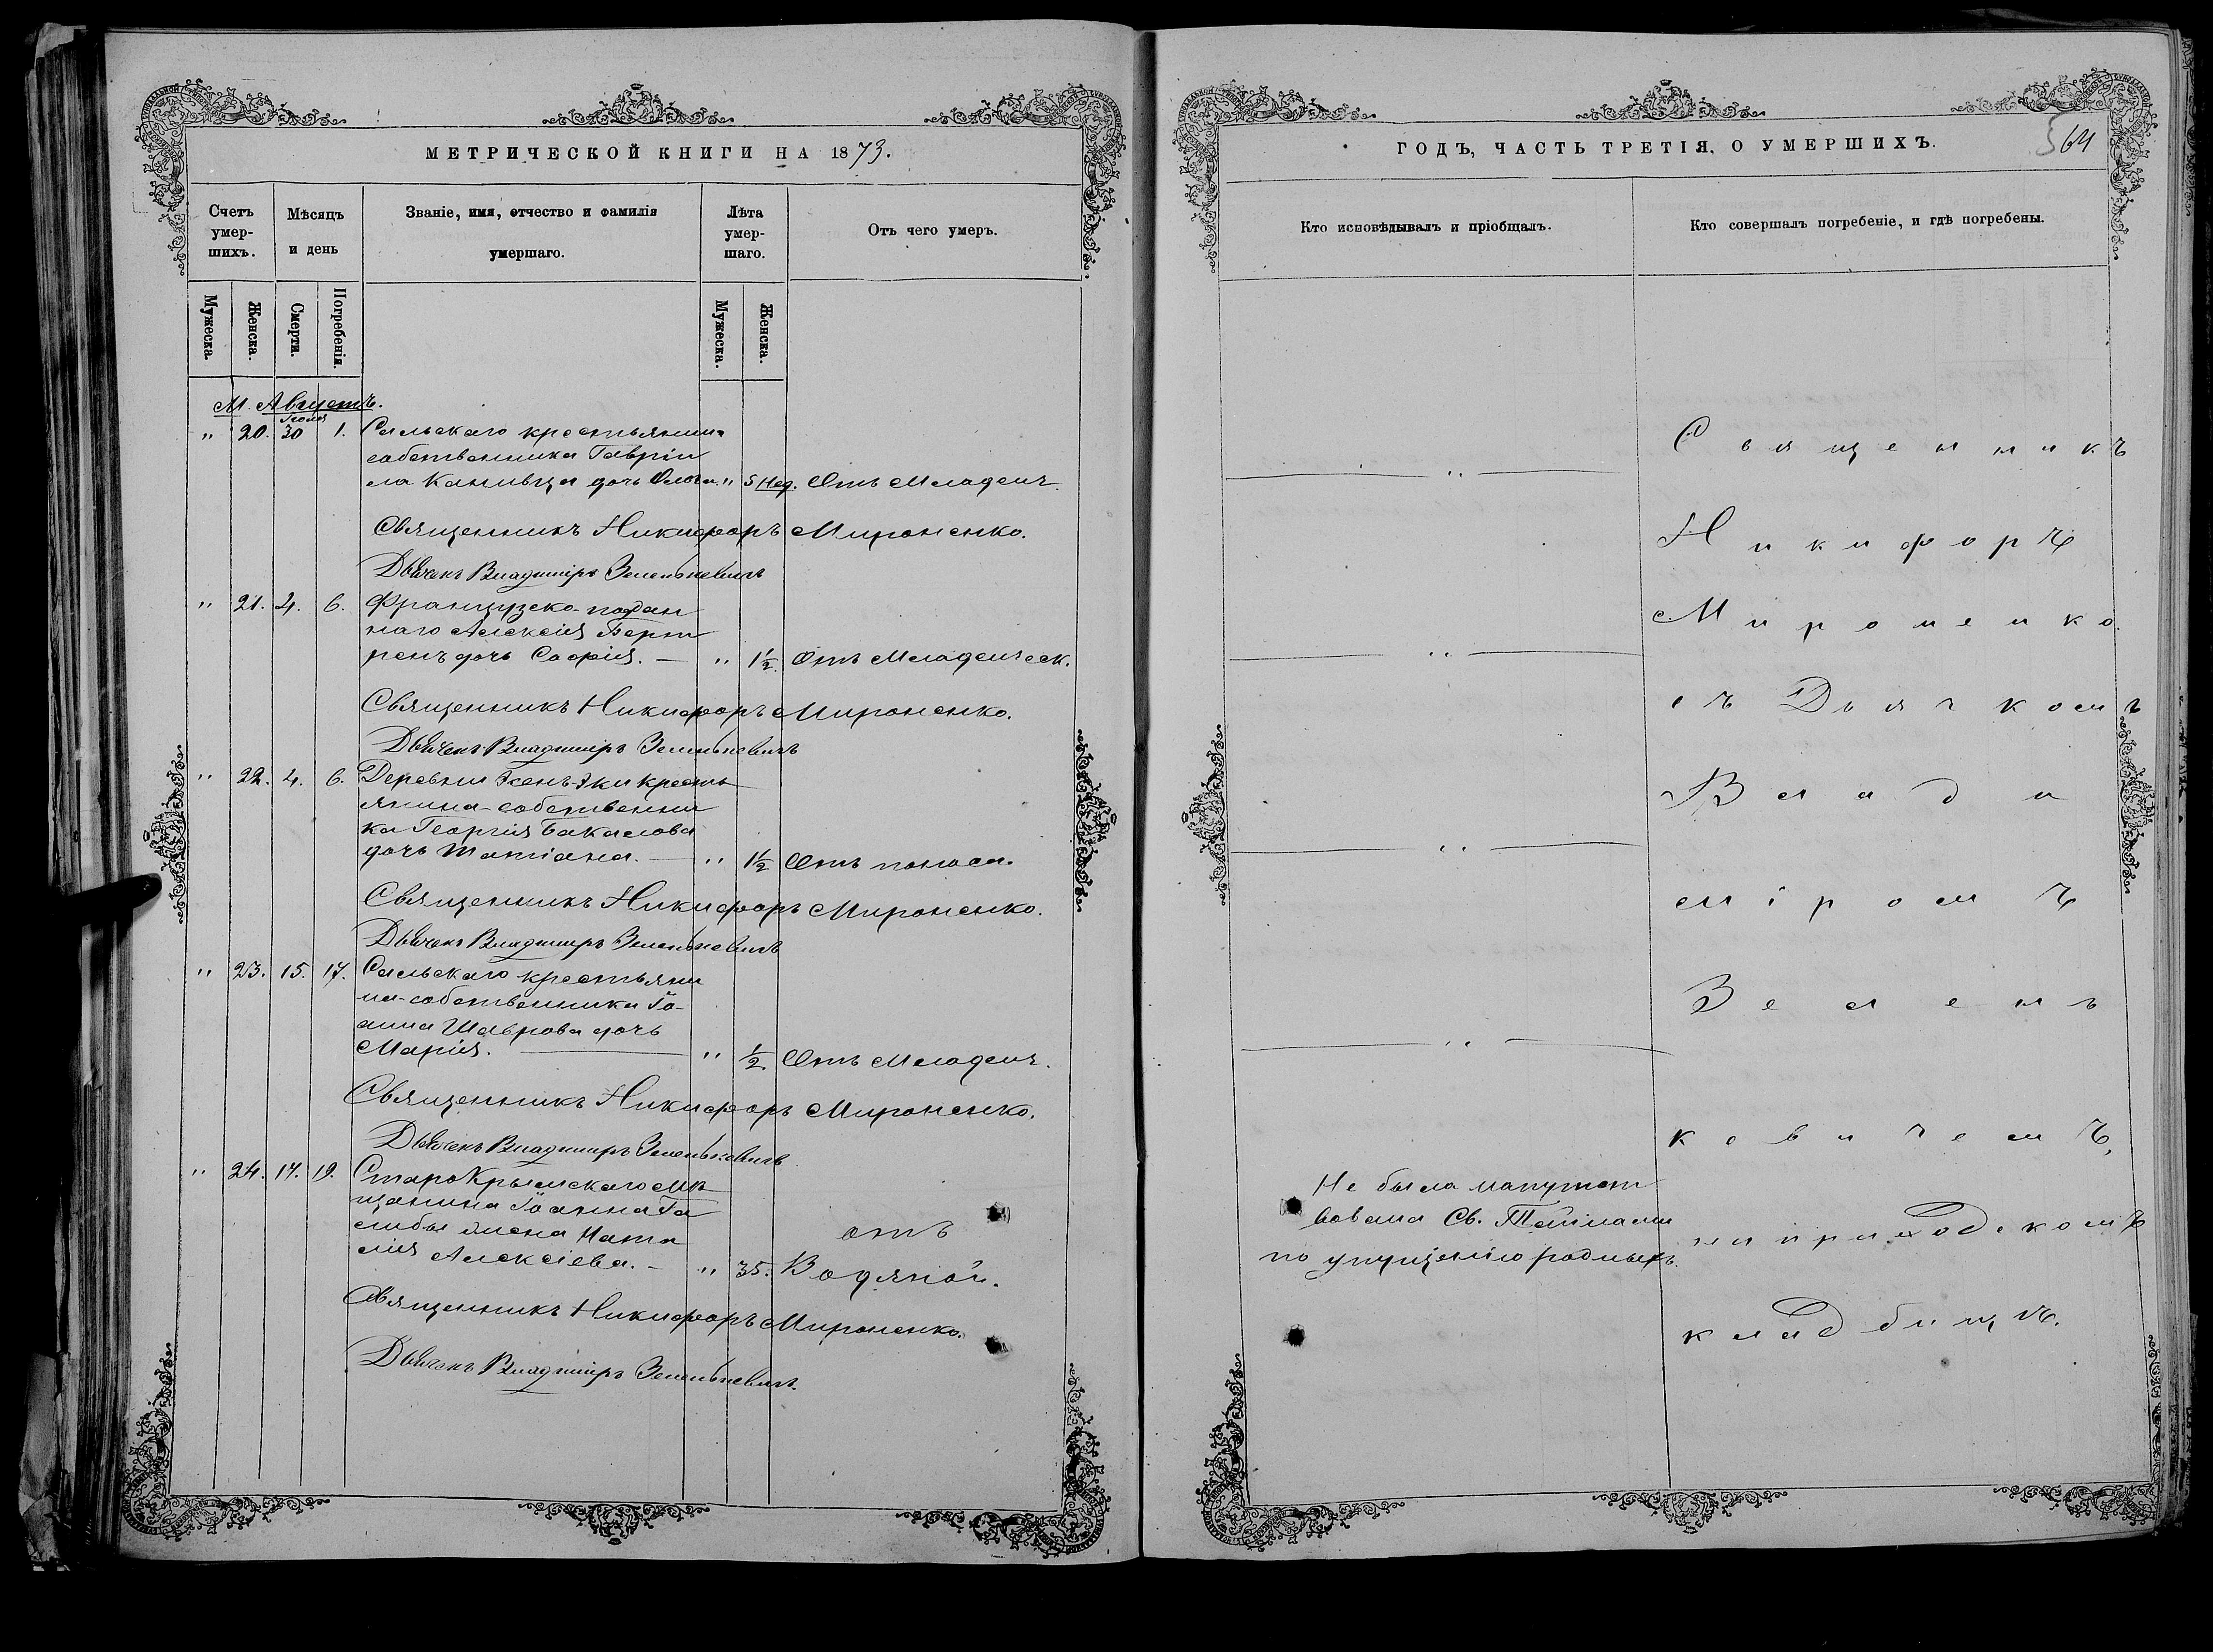 МЕТРИЧЕСКОЙ КНИГИ НА 1873.
Счетъ умер-шихъ.
Мѣсяцъ и день
Званіе, имя, отчество и фамилія умершаго.
Лѣта умер-шаго.
Отъ чего умеръ.
Мужеска.
Женска.
Смерти.
Погребенія.
Мужеска.
Женска.
М. Августъ.
Іюля
" 20. 30 1. Сальскаго крестьянин
собственника Гаврiи
ла Канивца дочь " 5 Нед. Отъ Младенч.
Священникъ Никифоръ Мироненко.
Дьячекъ Владиміръ Зеленькевичъ
" 21. 4. 6. Французско-подан
наго Алексія Берт
ренъ дочь Софія. — " 1½. Отъ Младенческ.
Священникъ Никифоръ Мироненко.
Дьячекъ Владиміръ Зеленькевичъ
" 22. 4. 6. Деревни кресть
янина-собственни
ка Георгія Бакалова
дочь Татіана. — " 1½ Отъ поноса.
Священникъ Никифоръ Мироненко.
Дьячекъ Владиміръ Зеленькевичъ
" 23. 15. 17. Сальскаго крестьяни
на-собственника Іо-
анна Шаврова дочь
Марія. — " ½. Отъ Младенч.
Священникъ Никифоръ Мироненко.
Дьячекъ Владиміръ Зеленькевичъ
" 24. 17. 19. СтароКрымскаго Мѣ
щанина Іоанна Га
жена Ната
лія Алексіева. — " 35. отъ
Водяной.
Священникъ Никифоръ Мироненко.
Дьячекъ Владиміръ Зеленькевичъ.
ГОДЪ, ЧАСТЬ ТРЕТІЯ, О УМЕРШИХЪ.
564
Кто исповѣдывалъ и пріобщалъ.
Кто совершалъ погребеніе, и гдѣ погребены.
Священникъ
Никифоръ
Мироненко
съ Дьячкомъ
Влади
міромъ
Зелень
кевичемъ,
на приходскомъ
кладбищѣ.
Не была напутст
вована Св. Тайнами
по упущенію родныхъ.